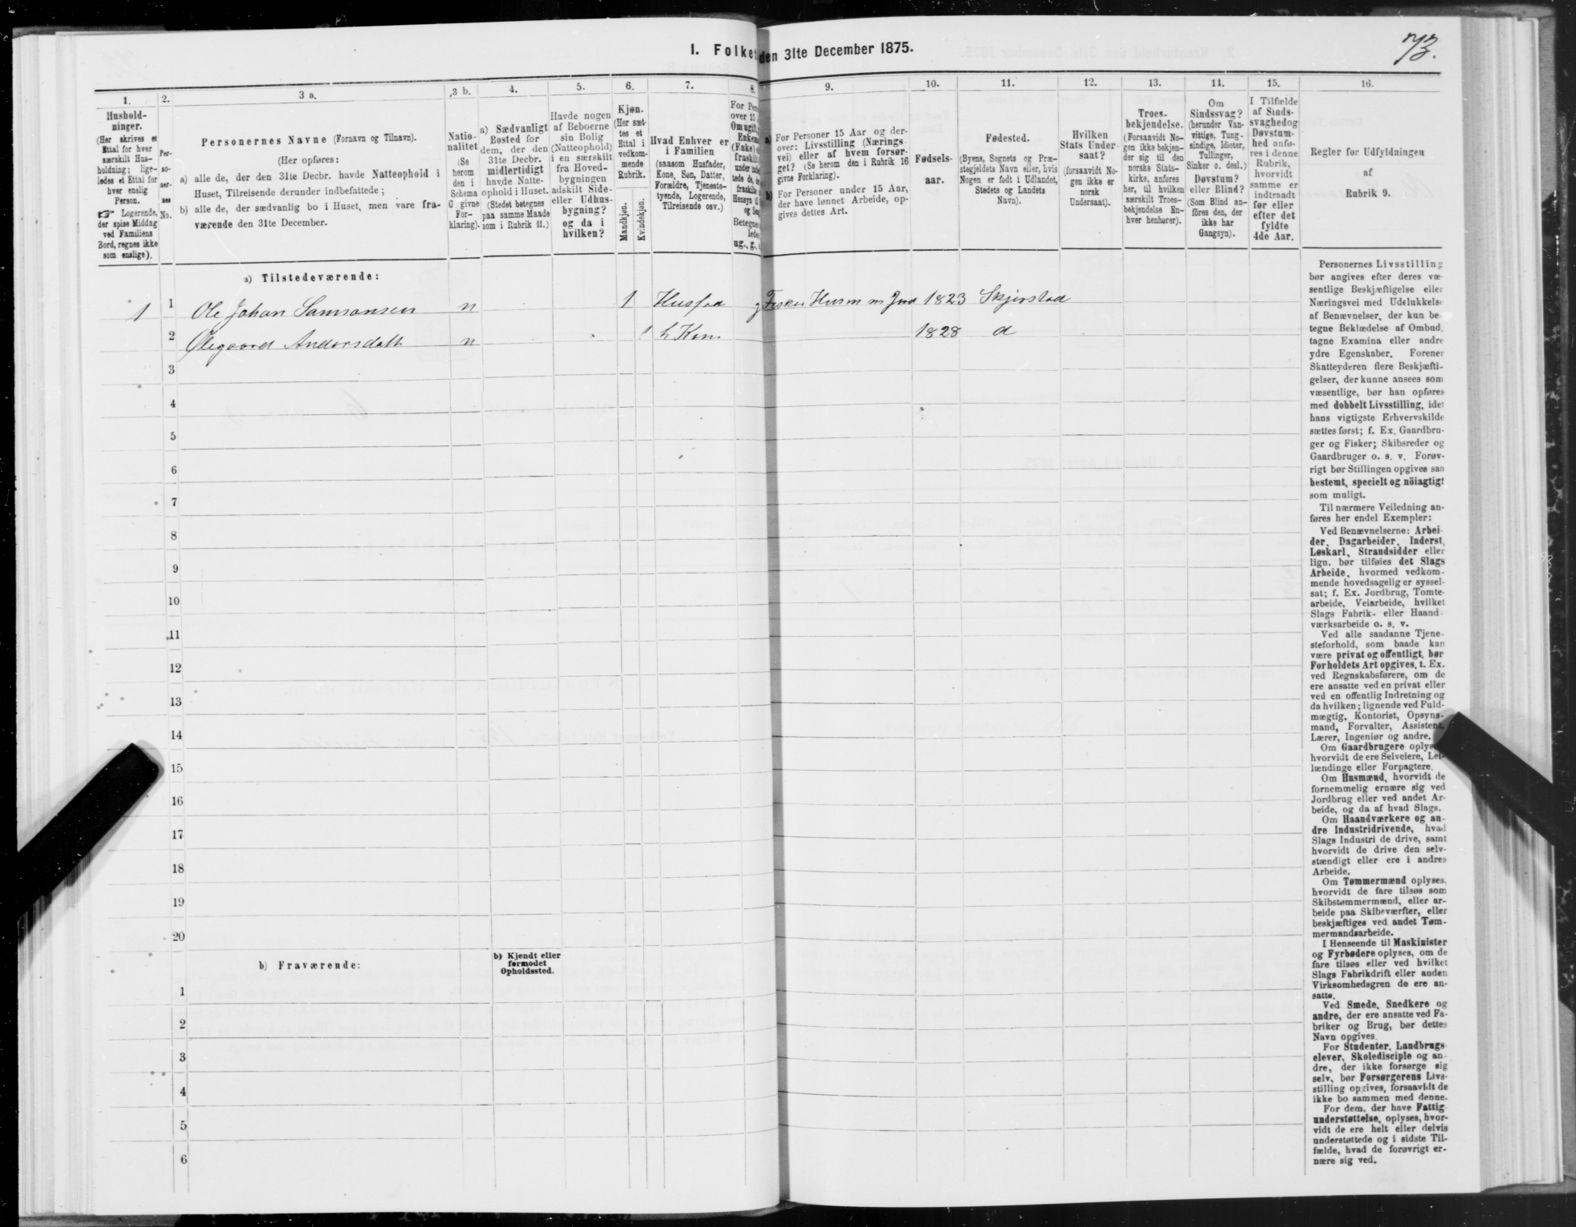 1. Folke den 31te December 1875.
73.
1.
Hushold-
ninger.
(Her skrives et
Ettal for hver
særskilt Hus-
holdning; lige-
ledes et Ettal for
hver enslig
Person.
☞ Logerende,
der spise Middag
ved Familiens
Bord, regnes ikke
som enslige).
2.
Per-
so-
ner-
nes
No.
3 a.
Personernes Navne (Fornavn og Tilnavn).
(Her opføres:
a) alle de, der den 31te Decbr. havde Natteophold i
Huset, Tilreisende derunder indbefattede;
b) alle de, der sædvanlig bo i Huset, men vare fra-
værende den 31te December.
3 b.
Natio-
nalitet
(Se
herom
den i
Schema
O givne
For-
klaring).
4.
a) Sædvanligt
Bosted for
dem, der den
31te Decbr.
midlertidigt
havde Natte-
ophold i Huset.
(Stedet betegnes
paa samme Maade
som i Rubrik 11.)
5.
Havde nogen
af Beboerne
sin Bolig
(Natteophold)
i en særskilt
fra Hoved-
bygningen
adskilt Side-
eller Udhus-
bygning?
og da i
hvilken?
6.
Kjøn.
(Her sæt-
tes et
Ettal i
vedkom-
mende
Rubrik.
Mandkjøn.
Kvindekjøn.
7.
Hvad Enhver er
i Familien
(saasom Husfader,
Kone, Søn, Datter,
Forældre, Tjeneste-
tyende, Logerende,
Tilreisende osv.)
8.
For Per
over 15
Om ugift,
Enke
(Enke)
ug., g.,
9.
a) For Personer 15 Aar og der-
over: Livsstilling (Nærings-
vei) eller af hvem forsør-
get? (Se herom den i Rubrik 16
givne Forklaring).
b) For Personer under 15 Aar,
der have lønnet Arbeide, op-
gives dettes Art.
10.
Fødsels-
aar.
11.
Fødested.
(Byens, Sognets og Præ-
stegjeldets Navn eller, hvis
Nogen er født i Udlandet,
Stedets og Landets
Navn).
12.
Hvilken
Stats Under-
saat?
(forsaavidt No-
gen ikke er
norsk
Undersaat).
13.
Troes-
bekjendelse.
(Forsaavidt No-
gen ikke bekjen-
der sig til den
norske Stats-
kirke, anføres
her, til hvilken
særskilt Troes-
bekjendelse En-
hver henhører).
14.
Om
Sindssvag?
(herunder Van-
vittige, Tung-
sindige, Idioter,
Tullinger,
Sinker o. desl.)
Døvstum?
eller Blind?
(Som Blind an-
føres den, der
ikke har
Gangsyn).
15.
I Tilfælde
af Sinds-
svaghed og
Døvstum-
hed anfø-
res i denne
Rubrik,
hvorvidt
samme er
indtraadt
før eller
efter det
fyldte
4de Aar.
16.
Regler for Udfyldningen
af
Rubrik 9.
a) Tilstedeværende:
1 1 Ole Johan Samsonsen n 1 Husfad g Fisker Husm m Jord 1823 Skjerstad
2 Olegaard Andorsdatt n 1 h Kon 1828 d
3
4
5
6
7
8
9
10
11
12
13
14
15
16
17
18
19
20
b) Fraværende:
b) Kjendt eller
formodet
Opholdssted.
1
2
3
4
5
6
Personernes Livsstilling
bør angives efter deres væ-
sentlige Beskjæftigelse eller
Næringsvei med Udelukkelse
af Benævnelser, der kun be-
tegne Beklædelse af Ombud,
tagne Examina eller andre
ydre Egenskaber. Forener
Skatteyderen flere Beskjæfti-
gelser, der kunne ansees som
væsentlige, bør han opføres
med dobbelt Livsstilling, idet
hans vigtigste Erhvervskilde
sættes først; f. Ex. Gaardbru-
ger og Fisker; Skibsreder og
Gaardbruger o. s. v. Forøv-
rigt bør Stillingen opgives saa
bestemt, specielt og nöiagtigt
som muligt.
Til nærmere Veiledning an-
føres her endel Exempler:
Ved Benævnelserne: Arbei-
der, Dagarbeider, Inderst,
Løskarl, Strandsidder eller
lign. bør tilføies det Slags
Arbeide, hvormed vedkom-
mende hovedsagelig er syssel-
sat; f. Ex. Jordbrug, Tomte-
arbeide, Veiarbeide, hvilket
Slags Fabrik- eller Haand-
værksarbeide o. s. v.
Ved alle saadanne Tjene-
steforhold, som baade kan
være privat og offentligt, bør
Forholdets Art opgives, t. Ex.
ved Regnskabsførere, om de
ere ansatte ved en privat eller
ved en offentlig Indretning og
da hvilken; lignende ved Fuld-
mægtig, Kontorist, Opsyns-
mand, Forvalter, Assistent,
Lærer, Ingeniør og andre.
Om Gaardbrugere oplyses,
hvorvidt de ere Selveiere, Lei-
lændinge eller Forpagtere.
Om Husmænd, hvorvidt de
fornemmelig ernære sig ved
Jordbrug eller ved andet Ar-
beide, og da af hvad Slags.
Om Haandværkere og an-
dre Industridrivende, hvad
Slags Industri de drive, samt
hvorvidt de drive den selv-
stændigt eller ere i andres
Arbeide.
Om Tømmermænd oplyses,
hvorvidt de fare tilsøs som
Skibstømmermænd, eller ar-
beide paa Skibsværfter, eller
beskjæftiges ved andet Tøm-
mermandsarbeide.
I Henseende til Maskinister
og Fyrbødere oplyses, om de
fare tilsøs eller ved hvilket
Slags Fabrikdrift eller anden
Virksomhedsgren de ere an-
satte.
Ved Smede, Snedkere og
andre, der ere ansatte ved Fa-
briker og Brug, bør dettes
Navn opgives.
For Studenter, Landbrugs-
elever, Skoledisciple og an-
dre, der ikke forsørge sig
selv, bør Forsørgerens Livs-
stilling opgives, forsaavidt de
ikke bo sammen med denne.
For dem, der have Fattig-
understøttelse, oplyses, hvor-
vidt de ere helt eller delvis
understøttede og i sidste Til-
fælde, hvad de forøvrigt er-
nære sig ved.